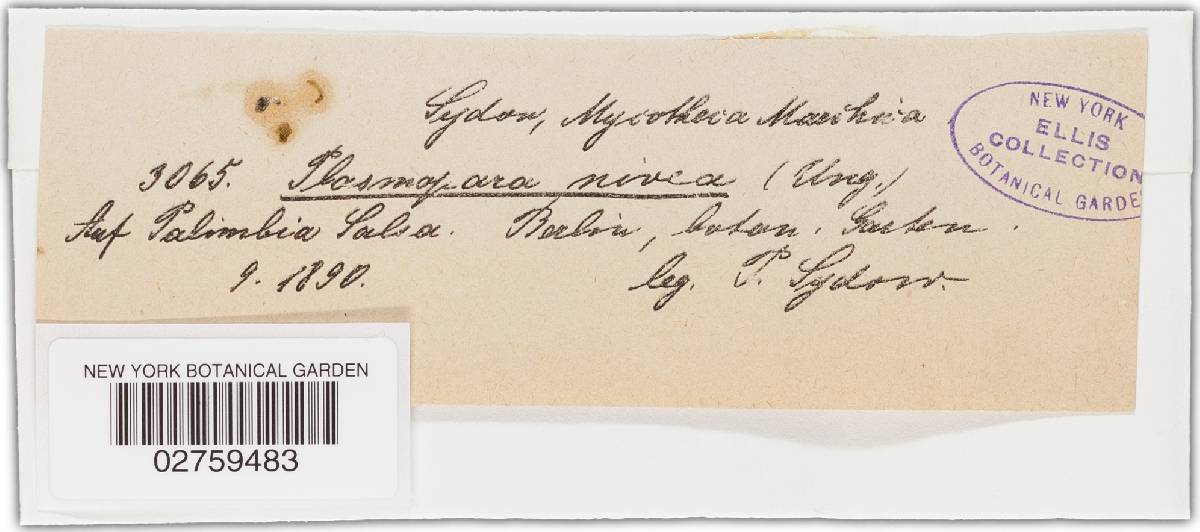 Sydow, Mycotheca Marchica
3065. Plasmopara nivea (Ung.)
Auf Palimbia Salsa. Berlin, botan. Garten.
9. 1890. leg. P. Sydow.
NEW YORK
ELLIS
COLLECTION
BOTANICAL GARDE
NEW YORK BOTANICAL GARDEN
02759483